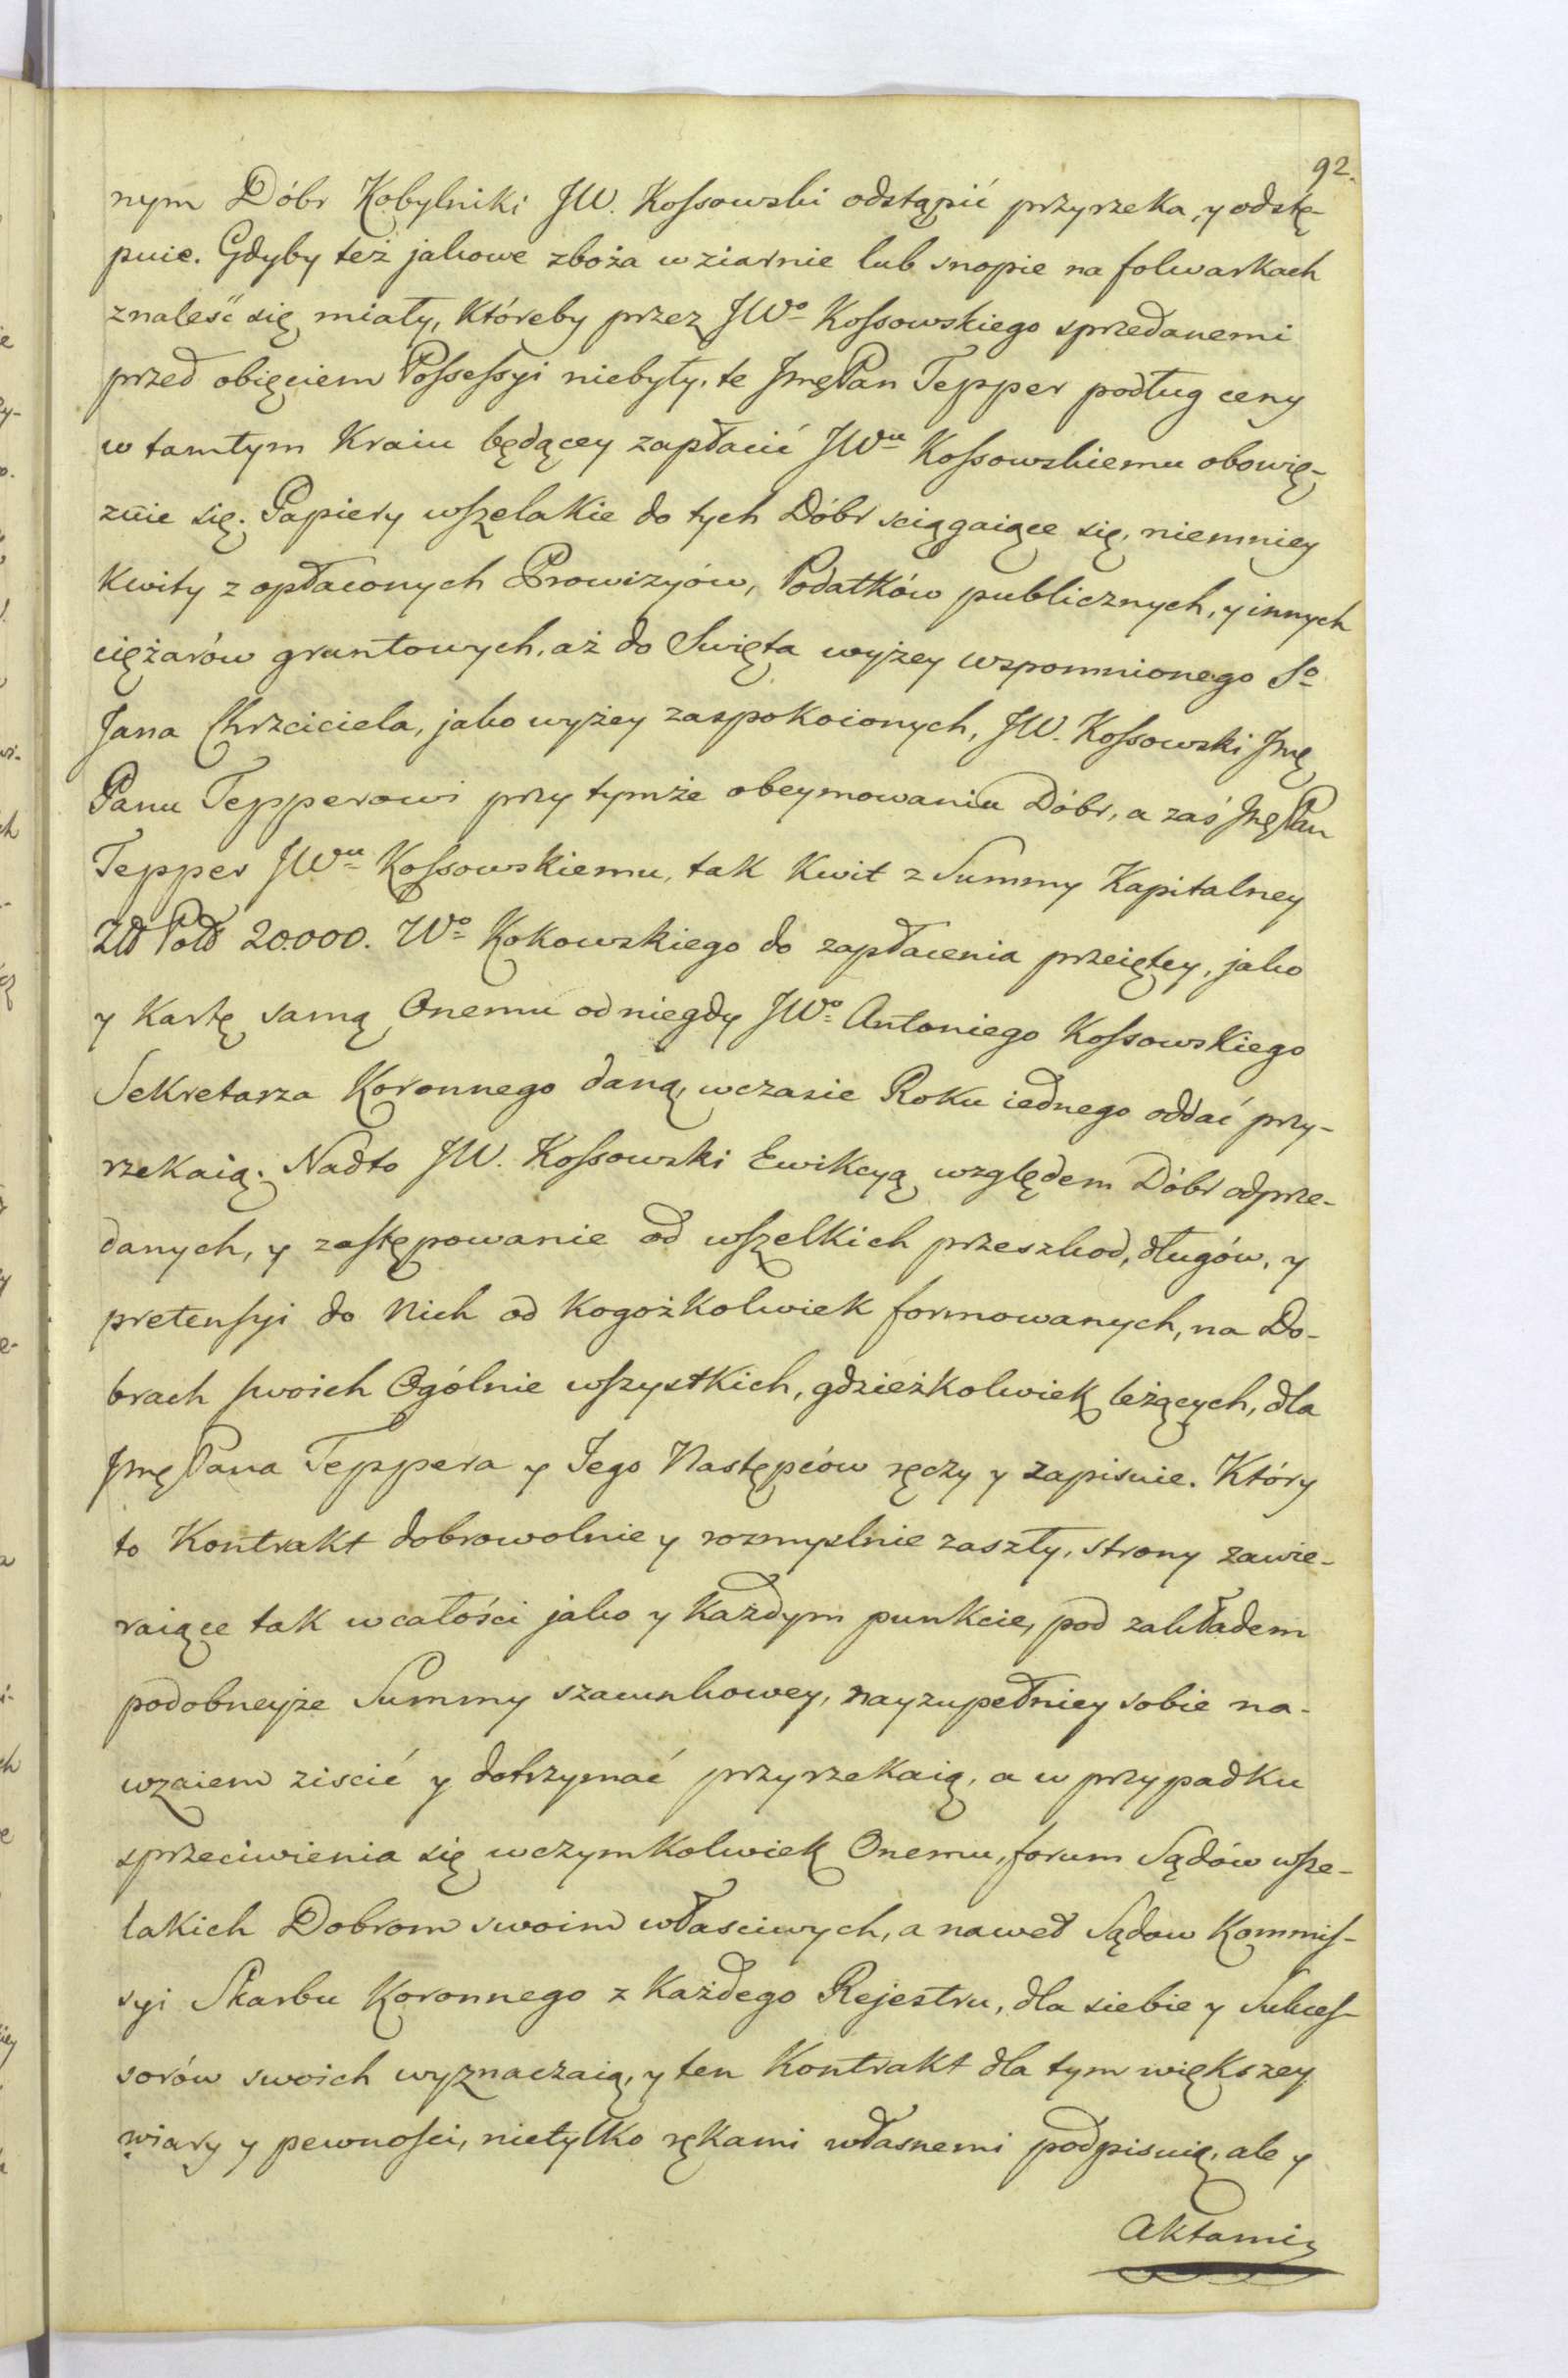 92.
nym Dóbr Kobylniki JW. Kossowski odstąpić przyrzeka, y odstę-
puie. Gdyby też jakowe zboża w ziarnie lub snopie na folwarkach
znaleść się miały, któreby przez JWo Kossowskiego sprzedanemi
przed obięciem Possessyi niebyły, te Jmę Pan Tepper podług ceny
w tamtym Kraiu będącey zapłacić JWu Kossowskiemu obowię-
zuie się. Papiery wszelakie do tych Dóbr sciągaiące się, niemniey
Kwity z opłaconych Prowizyów, Podatków publicznych, y innych
ciężarów gruntowych, aż do Swięta wyżey wspomnionego So
Jana Chrzciciela, jako wyżey zaspokoionych, JW. Kossowski Jmę
Panu Tepperowi przy tymże obeymowaniu Dóbr, a zaś Jmę Pan
Tepper JWu Kossowskiemu, tak Kwit z Summy Kapitalney
Złł Poll 20.000. Wo Kokowskiego do zapłacenia przeiętey, jako
y Kartę samą Onemu od niegdy JWo Antoniego Kossowskiego
Sekretarza Koronnego daną, w czasie Roku iednego oddać przy-
rzekaią. Nadto JW. Kossowski Ewikcyą względem Dóbr odprze-
danych, y zastępowanie od wszelkich przeszkod, długów, y
pretensyi do Nich od kogożkolwiek formowanych, na Do-
brach swoich Ogólnie wszystkich, gdzieżkolwiek leżących, dla
Jmę Pana Teppera y Jego Następców ręczy y zapisuie. Który
to Kontrakt dobrowolnie y rozmyslnie zaszły, strony zawie-
raiące tak w całości jako y każdym punkcie, pod zakładem
podobneyże Summy szacunkowey, nayzupełniey sobie na-
wzaiem ziscić y dotrzymać przyrzekaią, a w przypadku
sprzeciwienia się w czymkolwiek Onemu, forum Sądów wsze-
lakich Dobrom swoim własciwych, a nawet Sądow Kommis-
syi Skarbu Koronnego z każdego Rejestru, dla siebie y Sukces-
sorów swoich wyznaczaią, y ten Kontrakt dla tym większey
wiary y pewności, nietylko rękami własnemi podpisuią, ale y
Aktami